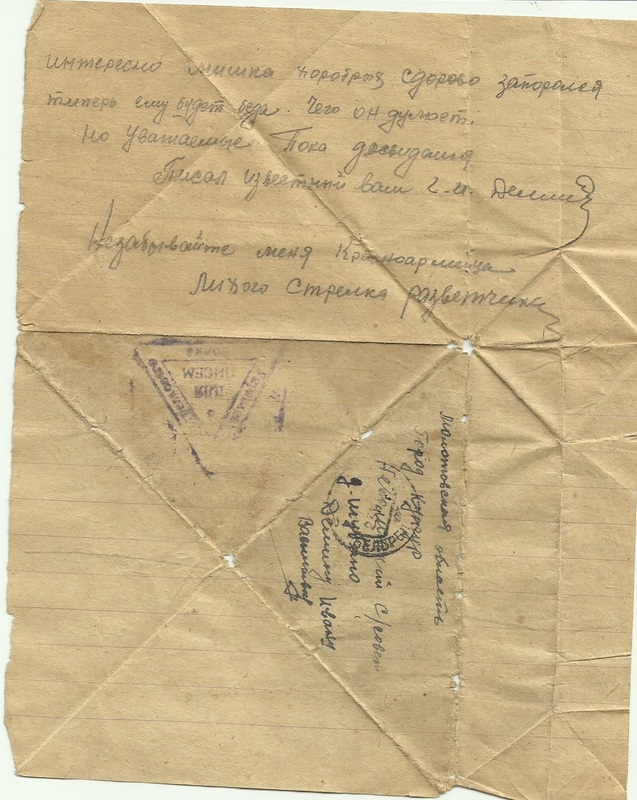 интересно мишка здорово запоролся
типерь ему будет беда. Чего он думает.
Но уважаемые Пока досвидания
Писал известный вам Демин
Незабывайте меня Красноармейца
Лихого Стрелка разветчика
ДЛЯ
ПИСЕМ
Молотовская область
Город Кунгур
с/совет
Демину Ивану